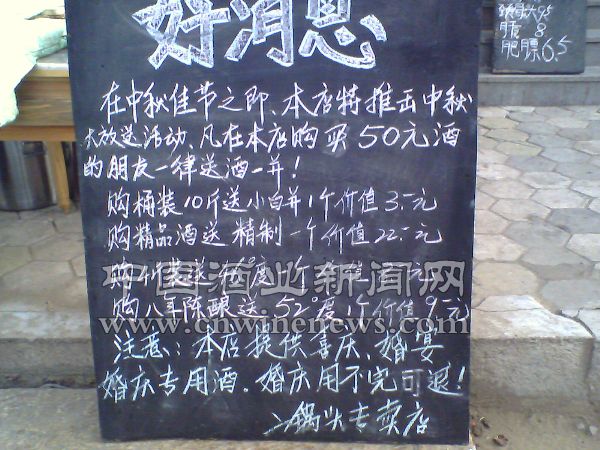 好消息
在中秋佳节之即、本店特推出中秋
大放送活动、凡在本店购买50元酒
的朋友一律送酒一并!
购桶装10斤送小白并1个价值3元
购精品酒送精制一个价值22元
中国酒业新闻网
购八年陈酿送52°度1个价值9元
www.cnwinenews.com
注意:本店提供喜庆、婚宴
婚庆专用酒、婚庆用不完可退!
二锅头专卖店
8
肥膘6.5